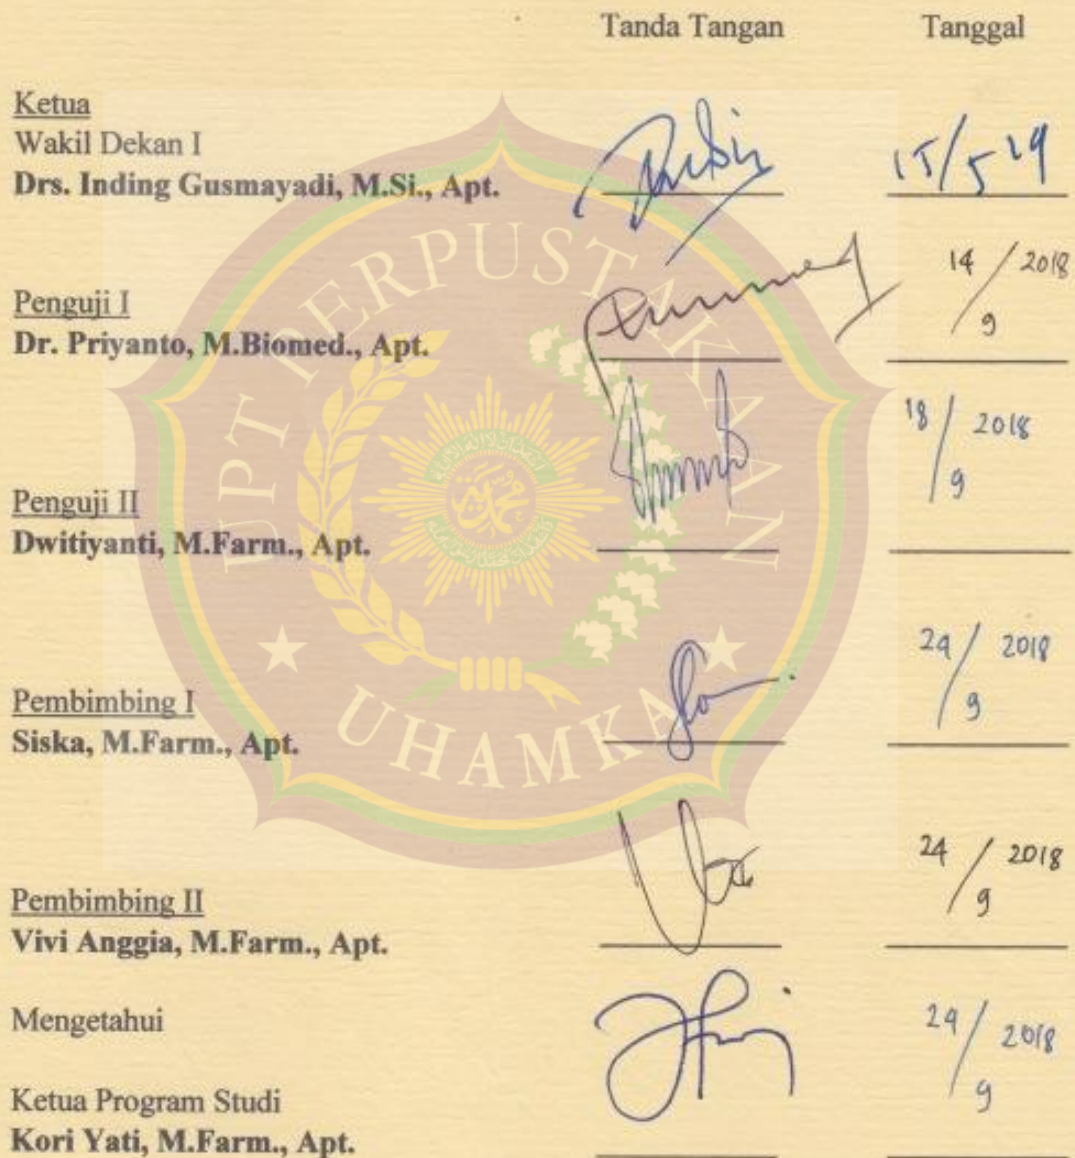 Tanda Tangan Tanggal
Ketua
Wakil Dekan I
Drs. Inding Gusmayadi, M.Si., Apt. 15/5 19
Penguji I 14/9 2018
Dr. Priyanto, M.Biomed., Apt.
18/9 2018
Penguji II
Dwitiyanti, M.Farm., Apt.
Pembimbing I 24/9 2018
Siska, M.Farm., Apt.
24/9 2018
Pembimbing II
Vivi Anggia, M.Farm., Apt.
Mengetahui 24/9 2018
Ketua Program Studi
Kori Yati, M.Farm., Apt.
UPT PERPUSTAKAAN
UHAMKA